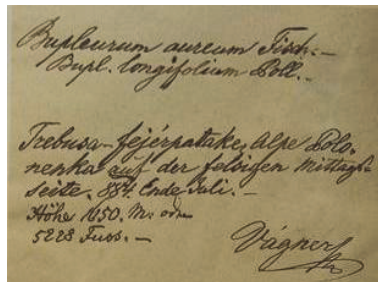 Bupleurum aureum Fisch.–
Bupl. longifolium Poll.–
Trebusa-fejérpatake, Alpe Polo-
nenka auf der felsigen Mittags-
seite. 884. Ende Juli.–
Höhe 1650. M. oder
5228 Fuss.–
Vágner